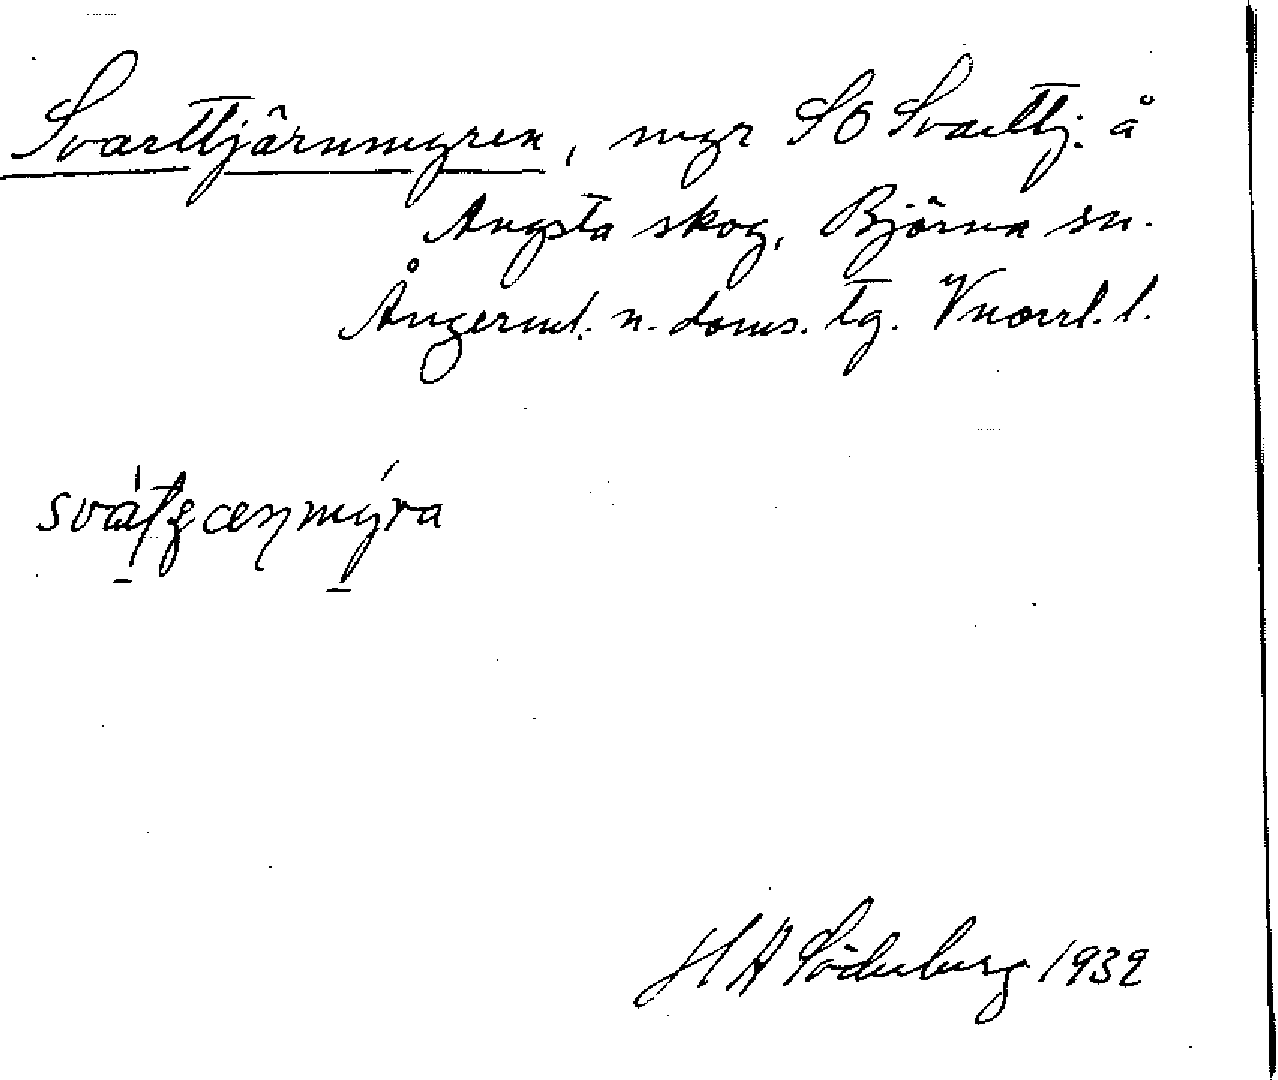 Svarttjärnmyren, myr SO Svarttj. å
Angsta skog, Björna sn.
Ångerml. n. doms. tg. Vnorrl. l.
H A Söderberg 1932